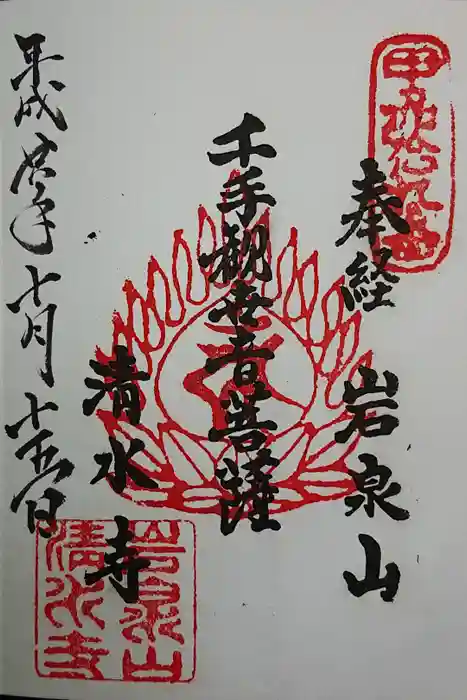 奉経 岩泉山
千手観世音菩薩
清水寺
平成 年十月十五日
岩泉山
清水寺